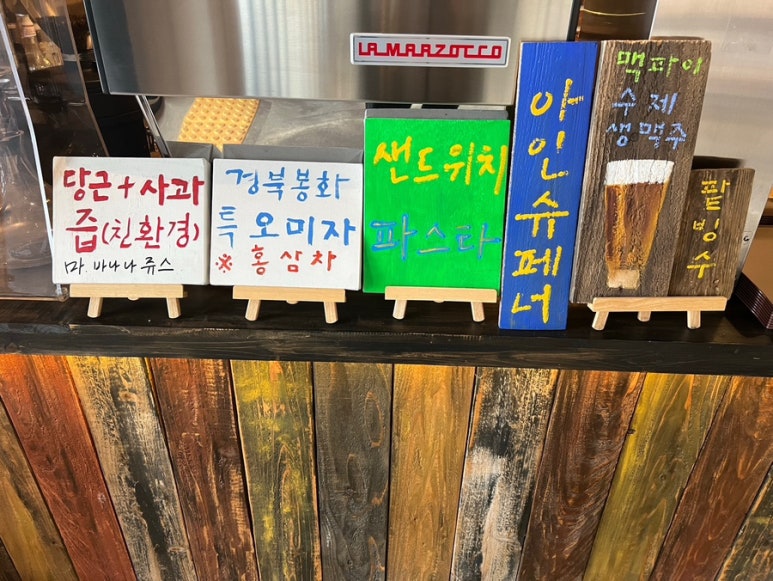 LA MARZOCCO
당근 + 사과
즙(친환경)
마. 바나나 쥬스
경북봉화
특 오미자
※ 홍삼차
샌드위치
파스타
아인슈페너
맥파이
수제
생맥주
팥빙수